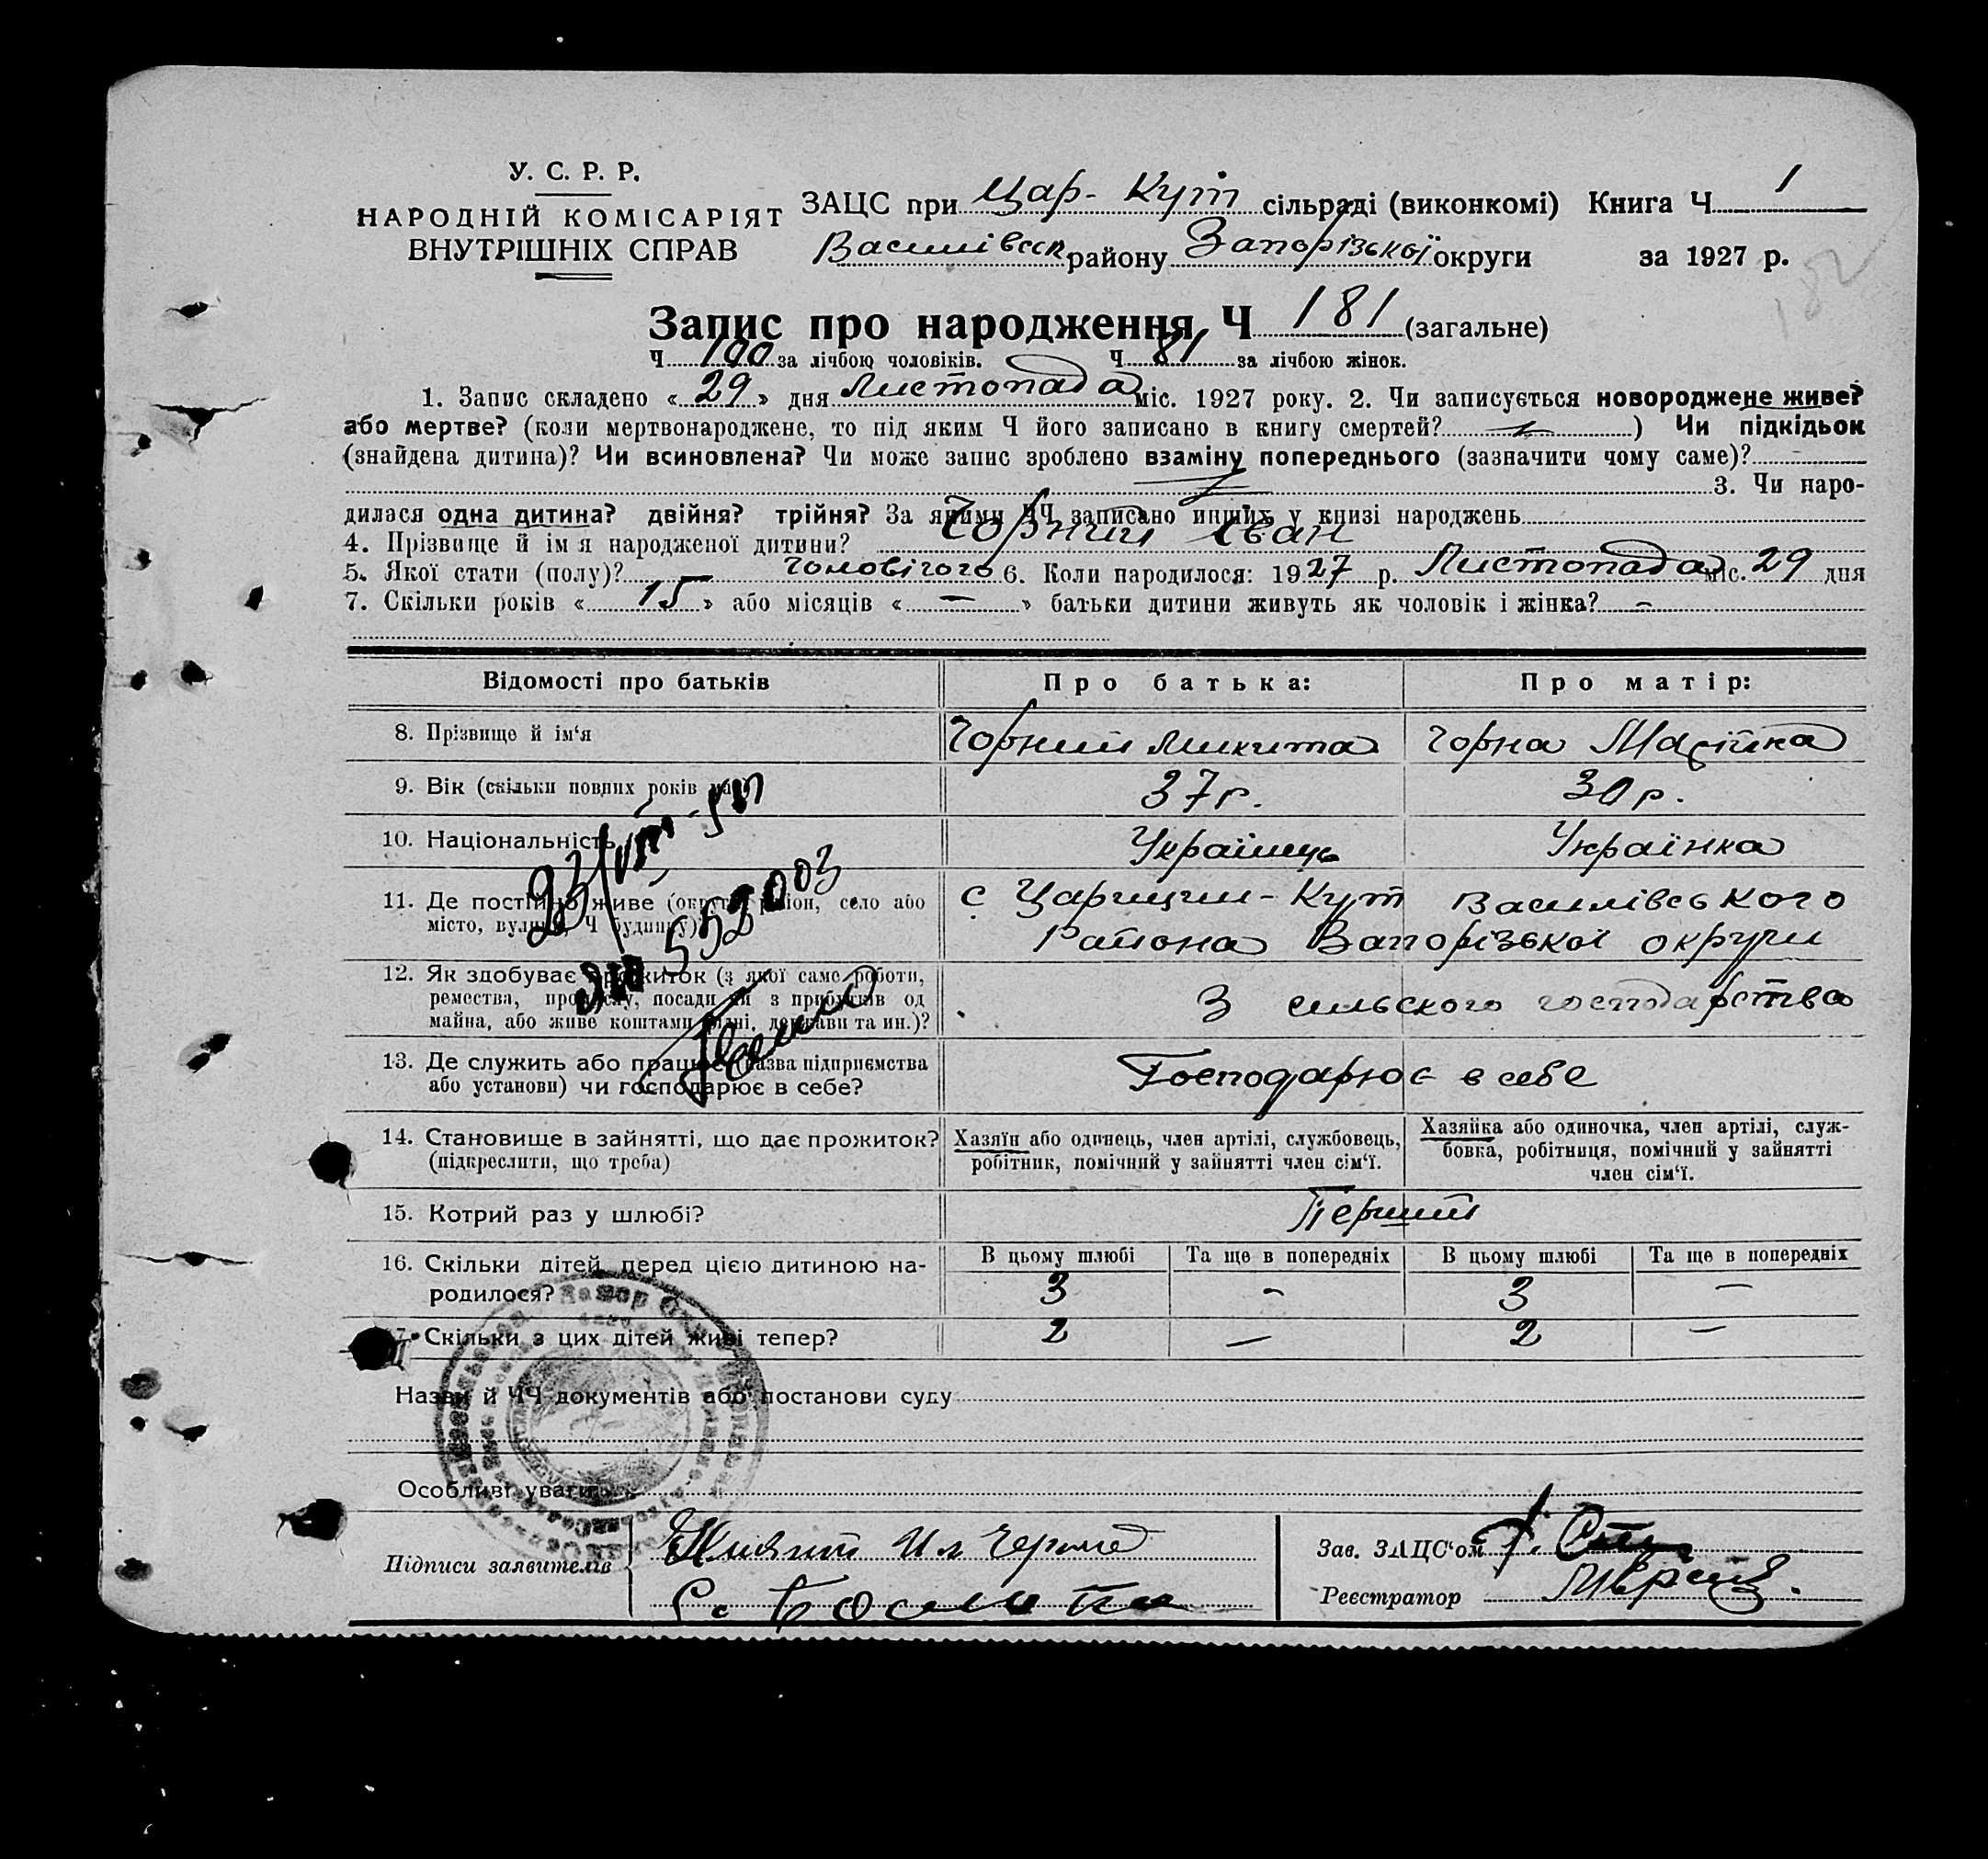 У. С. Р. Р.
НАРОДНІЙ КОМІСАРІЯТ
ВНУТРІШНІХ СПРАВ
ЗАЦС при Цар-Кут сільраді (виконкомі) Книга Ч. 1
Василівськ району Запорізької округи за 1927 р.
182
Запис про народження Ч. 181 (загальне)
Ч. 100 за лічбою чоловіків. Ч. 81 за лічбою жінок.
1. Запис складено «29» дня Листопада міс. 1927 року. 2. Чи записується новороджене живе?
або мертве? (коли мертвонароджене, то під яким Ч його записано в книгу смертей? ) Чи підкідьок
(знайдена дитина)? Чи всиновлена? Чи може запис зроблено взаміну попереднього (зазначити чому саме)?
3. Чи наро-
дилася одна дитина? двійня? трійня? За якими ЧЧ записано инших у книзі народжень
4. Прізвище й ім я народженої дитини? Чорний Іван
5. Якої стати (полу)? чоловічого 6. Коли народилося: 1927 р. Листопада міс. 29 дня
7. Скільки років «15» або місяців «—» батьки дитини живуть як чоловік і жінка? -
Відомості про батьків Про батька: Про матір:
8. Прізвище й ім‘я Чорний Микита Чорна Марійка
9. Вік (скільки повних років має) 37 р. 30 р.
10. Національність Українець Українка
11. Де постійно живе (округа, район, село або с Царицин-Кут Василівського
місто, вулиця, Ч будинку)? Района Запорізької округи
12. Як здобуває прожиток (з якої саме роботи,
ремества, промислу, посади чи з прибутків од З сильского господарства
майна, або живе коштами рідні, держави та ин.)?
13. Де служить або працює (назва підприємства Господарює в себе
або установи) чи господарює в себе?
14. Становище в зайнятті, що дає прожиток? Хазяїн або одинець, член артілі, службовець, Хазяйка або одиночка, член артілі, служ-
(підкреслити, що треба) робітник, помічний у зайнятті член сім‘ї. бовка, робітниця, помічний у зайнятті
член сім‘ї.
15. Котрий раз у шлюбі? Перший
16. Скільки дітей перед цією дитиною на- В цьому шлюбі Та ще в попередніх В цьому шлюбі Та ще в попередніх
родилося? 3 - 3 —
17. Скільки з цих дітей живі тепер? 2 — 2 —
552003
Назви й ЧЧ документів або постанови суду
Особливі уваги
Підписи заявителів
Зав. ЗАЦС‘ом
Реєстратор